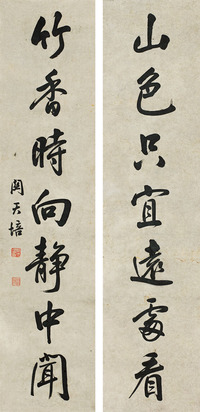 山色只宜遠處看
竹香時向静中聞
關天培